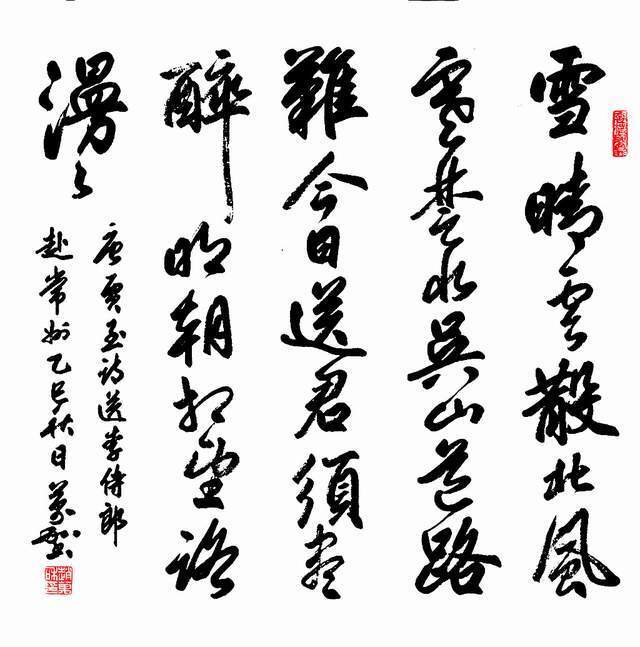 雪晴雲散北風
寒楚水吳山道路
難今日送君須盡
醉明朝相望路
漫々
唐賈至詩送李侍郎
赴常州乙巳秋日